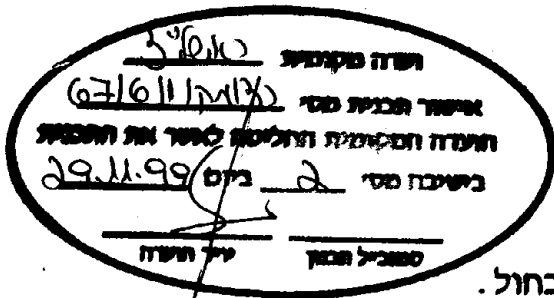 ועדה מקומית ראשל"צ
אישור תכנית מסי 67/6/1/1
הועדה המקומית החליטה לאשר את התכנית
בישיבה מסי 2 ביום 29.11.99
סמנכ"ל תכנון יו"ר הועדה
כחול.